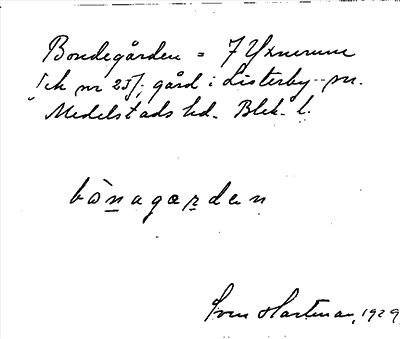 Bondegården = 7 Yxnerum
[ek nr 25], gård i Listerby sn.
Medelstads hd. Blek. l.
bònagærden
Sven Hartman, 1929